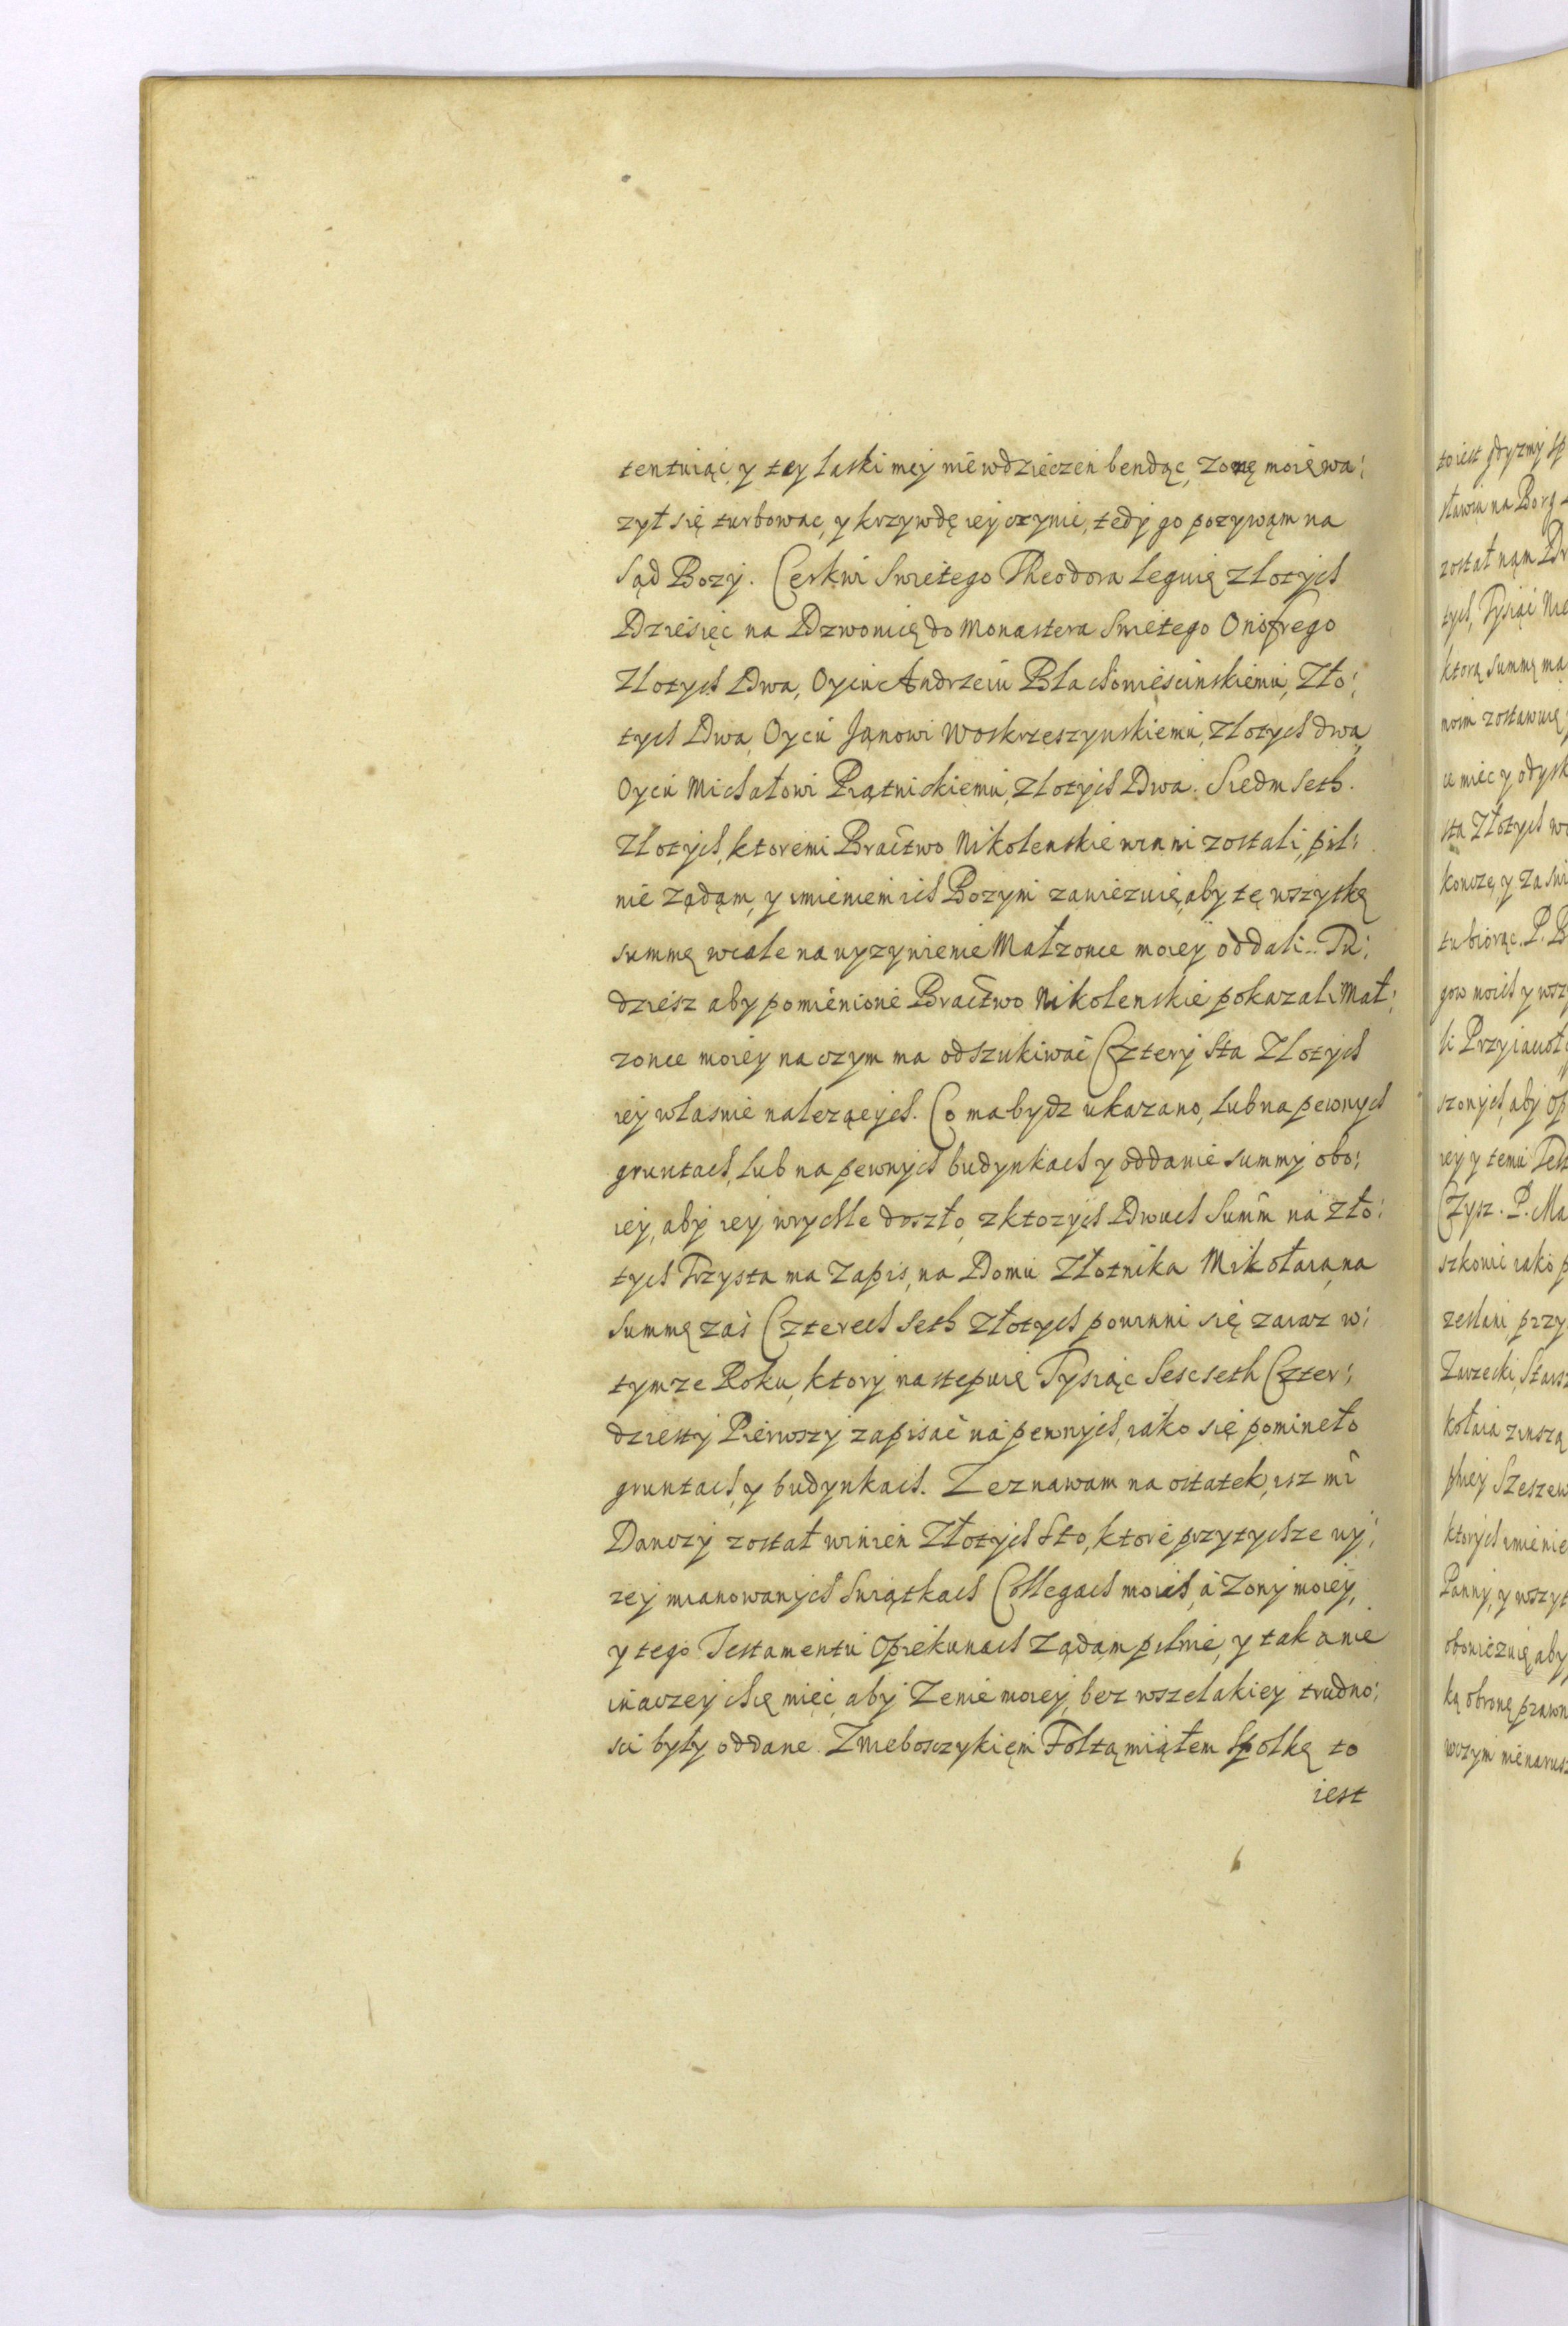 tentuiąc, y tey łaski mey niewdzieczen bendąc, zonę moię wa:
zył się turbowac, y krzywdę iey czynic, tedy go pozywąm na
Sąd Bozy. Cerkwi Swietego Theodora leguię Zlotych
Dziesięc na Dzwonicę do Monastera Swietego Onofrego
Zlotych Dwa, Oycu Andrzeiu Blachowiescinskiemu, Zło:
tych Dwa, Oycu Janowi Woskrzeszynskiemu, Zlotych dwa,
Oycu Michałowi Piątnickiemu, Zlotych Dwa. Siedm Seth.
Zlotych, ktoremi Bractwo Nikolenskie winni zostali, pil:
nie ządąm, y imieniem ich Bozym zawiezuię, aby tę wszytkę
summę wcale na wyzywienie Małzonce moiey oddali. Tu:
dziesz aby pomienione Bractwo Nikolenskie pokazali Mał:
zonce moiey na czym ma odszukiwać Cztery Sta Zlotych
iey własnie nalezących. Co ma bydz ukazano, lub na pewnych
gruntach, lub na pewnych budynkach y oddanie summy obo:
iey, aby iey wrychle doszło, z ktozych Dwuch Summ na Zło:
tych Trzysta ma Zapis, na Domu Złotnika Mikołaia, na
Summę zaś Czterech Seth Złotych powinni się zaraz w:
tymze Roku, ktory nastepuię Tysiąc Sescseth Czter:
dziesty Pierwszy zapisać na pewnych, iako się pomineło
gruntach, y budynkach. Zeznawam na ostatek, isz mi
Danczy został winien Złotych Sto, które przy tychze wy:
zey mianowanych Swiątkach Collegach moich, a Zony moiey,
y tego Testamentu Opiekunach Ządąm pilnie, y tak a nie
inaczey chcę mięc, aby Zenie moiey, bez wszelakiey trudno:
sci były oddane. Z nieboszczykięm Foltą miąłem Spolkę to
iest